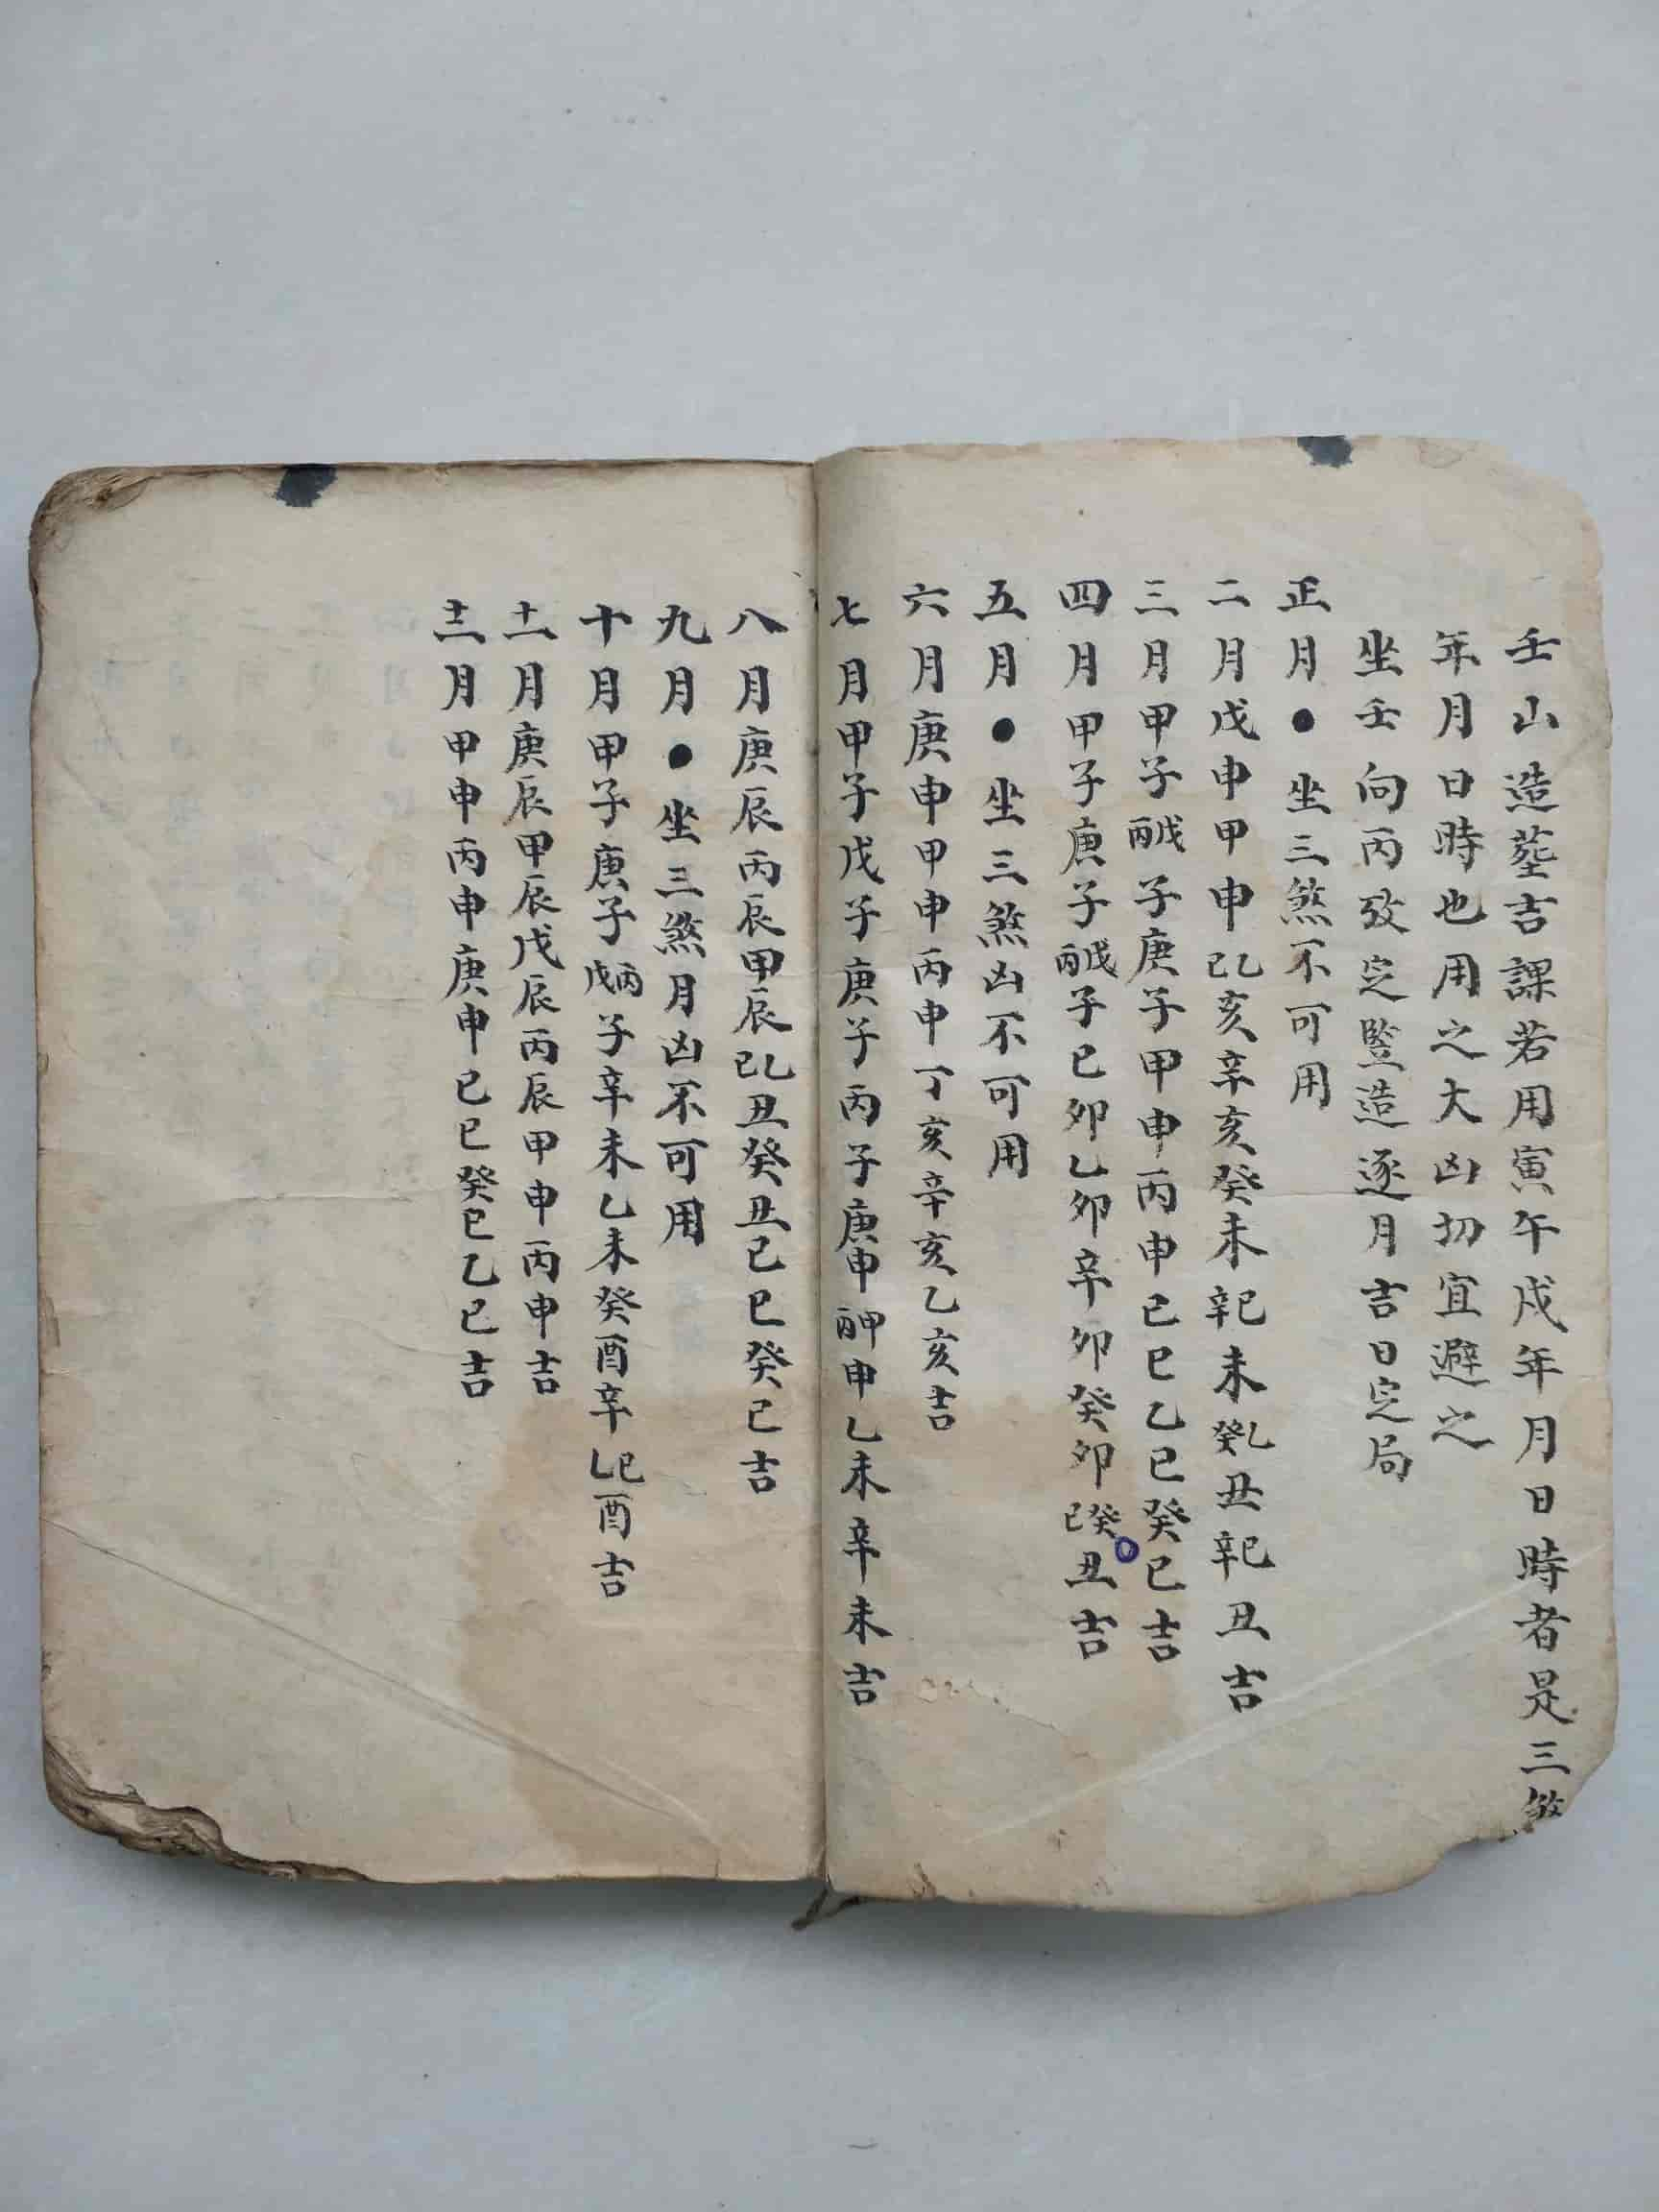 壬山造葬吉課若用寅午戌年月日時者是三煞
年月日時也用之大凶切宜避之
坐壬向丙攷定豎造逐月吉日定局
正月●坐三煞不可用
二月戊申甲申己乙亥辛亥癸未辛己未癸乙丑辛己丑吉
三月甲子丙戊子庚子甲申丙申己巳乙巳癸巳吉
四月甲子庚子丙戊子己卯乙卯辛卯癸卯己癸丑吉
五月●坐三煞凶不可用
六月庚申甲申丙申丁亥辛亥乙亥吉
七月甲子戊子庚子丙子庚申丙甲申乙未辛未吉
八月庚辰丙辰甲辰己乙丑癸丑己巳癸巳吉
九月●坐三煞月凶不可用
十月甲子庚子戊丙子辛未乙未癸酉辛乙己酉吉
十一月庚辰甲辰戊辰丙辰甲申丙申吉
十二月甲申丙申庚申己巳癸巳乙巳吉